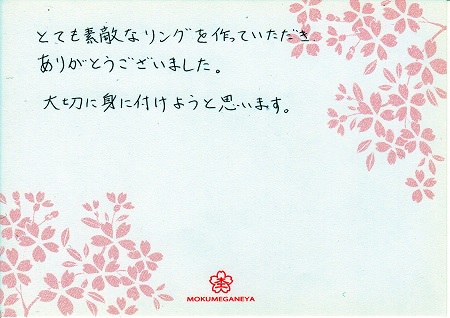 とても素敵なリングを作っていただき
ありがとうございました。
大切に身に付けようと思います。
MOKUMEGANEYA